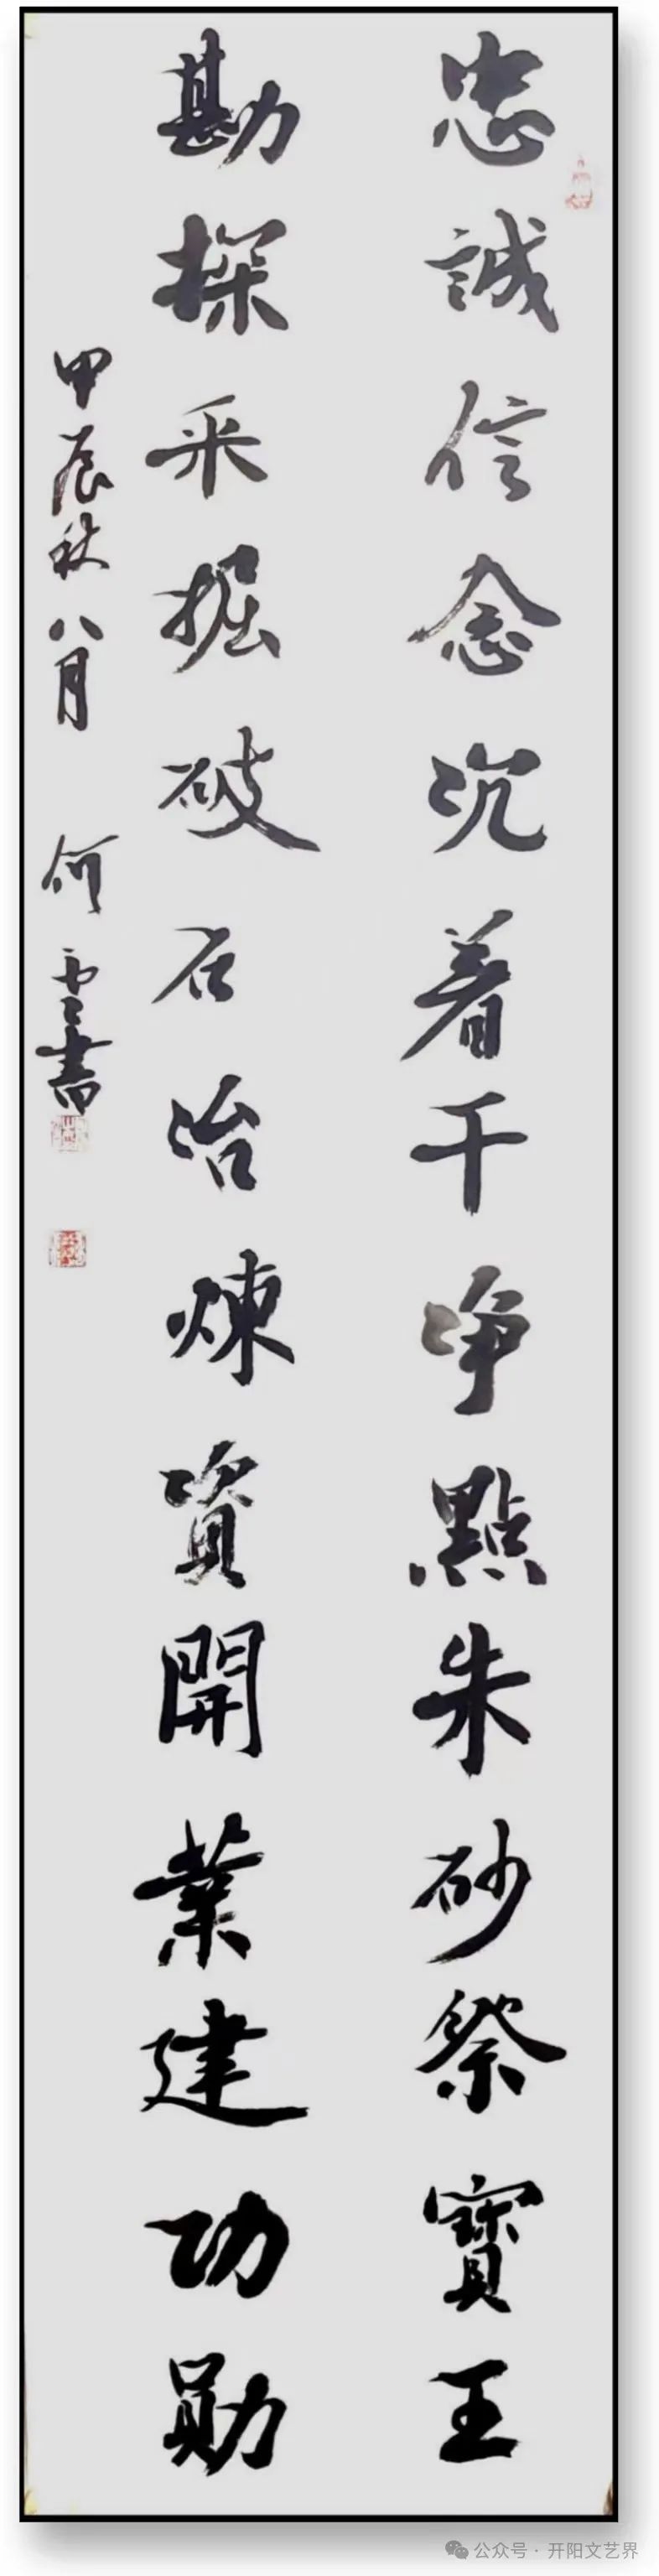 忠誠信念沉着干净點朱砂祭寳王
勘探采掘破石冶煉資開業建功勋
甲辰秋八月 何雲書
公众号 · 开阳文艺界